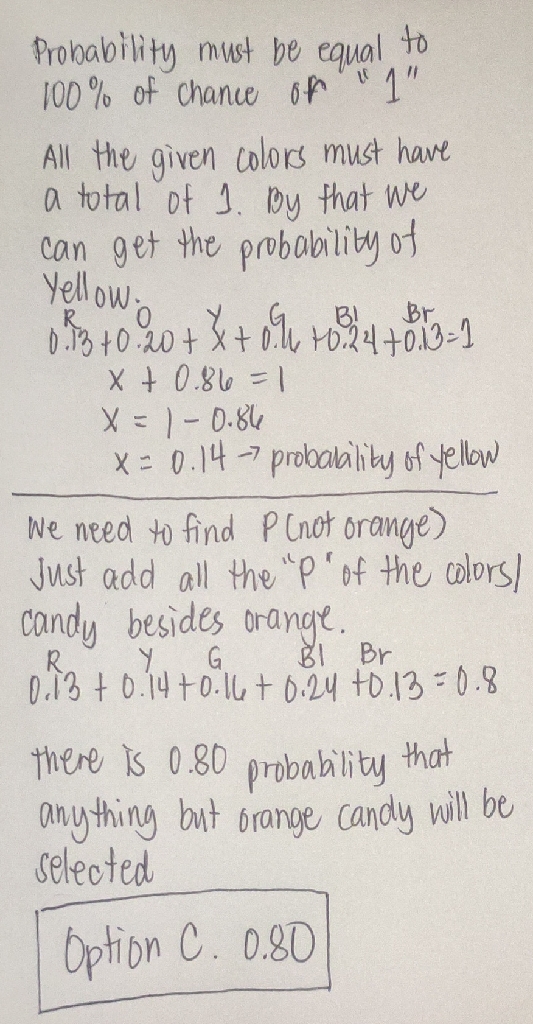 Probability must be equal to
100% of chance or "1"
All the given colors must have
a total of 1. By that we
can get the probability of
Yellow.
R O Y G Bl Br
0.13+0.20+X+0.16+0.24+0.13=1
X + 0.86 = 1
X = 1 - 0.86
X = 0.14 → probability of yellow
We need to find P (not orange)
Just add all the "P" of the colors/
candy besides orange.
R Y G Bl Br
0.13 + 0.14 + 0.16 + 0.24 + 0.13 = 0.8
there is 0.80 probability that
anything but orange candy will be
selected
Option C. 0.80